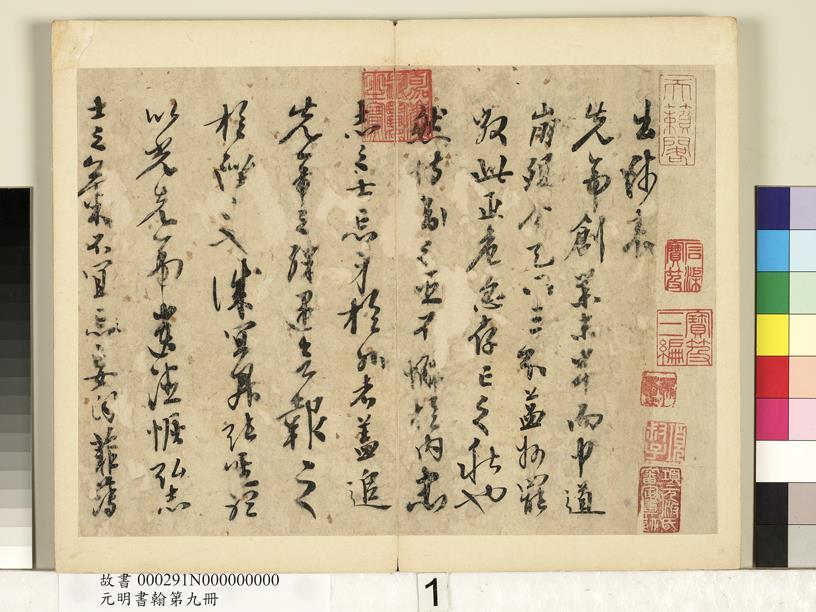 天籟閣
石渠寶笈
寶笈三編
項元汴氏審定真跡
出師表
先帝創業未半而中道
崩殂今天下三分益州罷
敝此正危急存亡之秋也
然侍衛之臣不懈於內忠
志之士忘身於外者蓋追
先帝之殊遇欲報之
於陛下也誠宜開張聖聽
以光先帝遺德恢弘志
士之氣不宜忘妄自菲薄
嘉慶御覽之寶
故書 000291N000000000
元明書翰第九冊
1